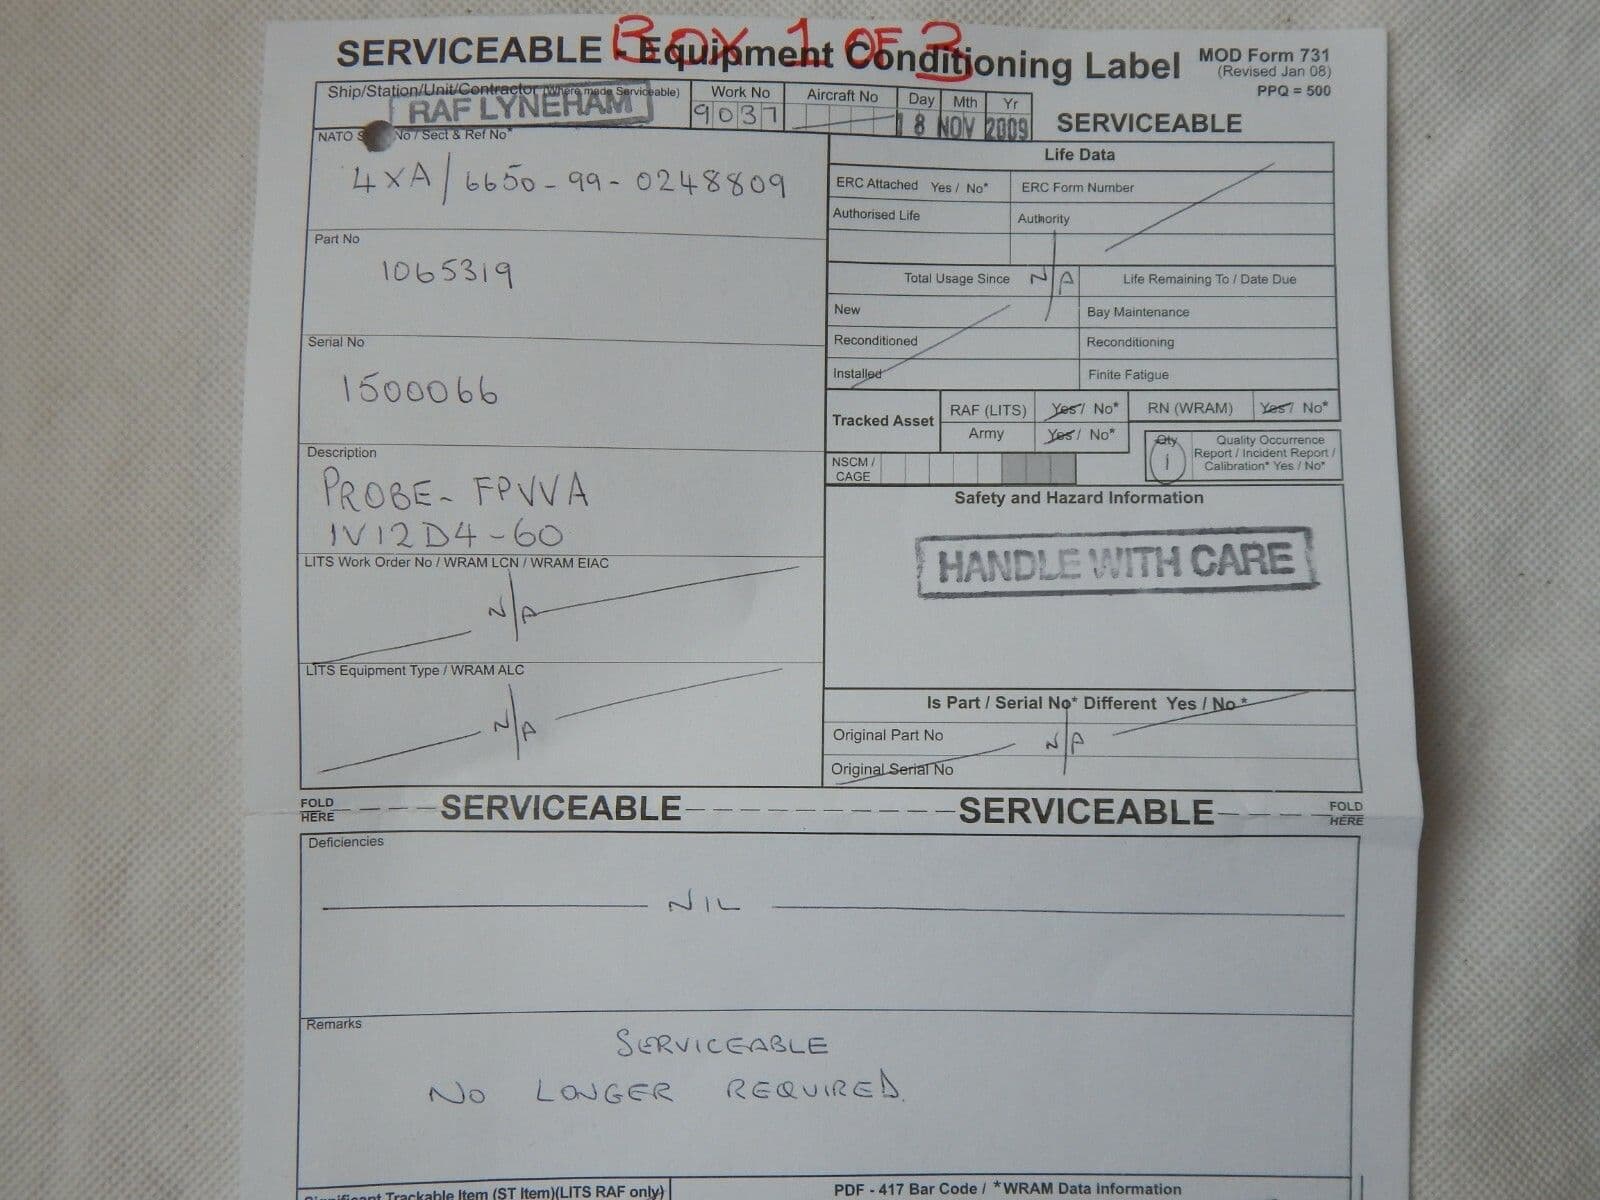 BOX 1 OF 3
SERVICEABLE - Equipment Conditioning Label
MOD Form 731
(Revised Jan 08)
PPQ = 500
Ship/Station/Unit/Contractor (Where made Serviceable)
RAF LYNEHAM
Work No
9037
Aircraft No
Day Mth Yr
18 NOV 2009
SERVICEABLE
NATO S No / Sect & Ref No*
4XA/6650-99-0248809
Part No
1065319
Serial No
1500066
Description
PROBE- FPVVA
1V12D4-60
LITS Work Order No / WRAM LCN / WRAM EIAC
N/A
LITS Equipment Type / WRAM ALC
N/A
Life Data
ERC Attached Yes / No* ERC Form Number
Authorised Life Authority
Total Usage Since N/A Life Remaining To / Date Due
New Bay Maintenance
Reconditioned Reconditioning
Installed Finite Fatigue
Tracked Asset RAF (LITS) Yes / No* RN (WRAM) Yes / No*
Army Yes / No*
NSCM /
CAGE
Qty
1
Quality Occurrence
Report / Incident Report /
Calibration* Yes / No*
Safety and Hazard Information
HANDLE WITH CARE
Is Part / Serial No* Different Yes / No *
Original Part No N/A
Original Serial No
FOLD
HERE
SERVICEABLE SERVICEABLE
FOLD
HERE
Deficiencies
NIL
Remarks
SERVICEABLE
NO LONGER REQUIRED.
Significant Trackable Item (ST Item)(LITS RAF only)
PDF - 417 Bar Code / *WRAM Data Information